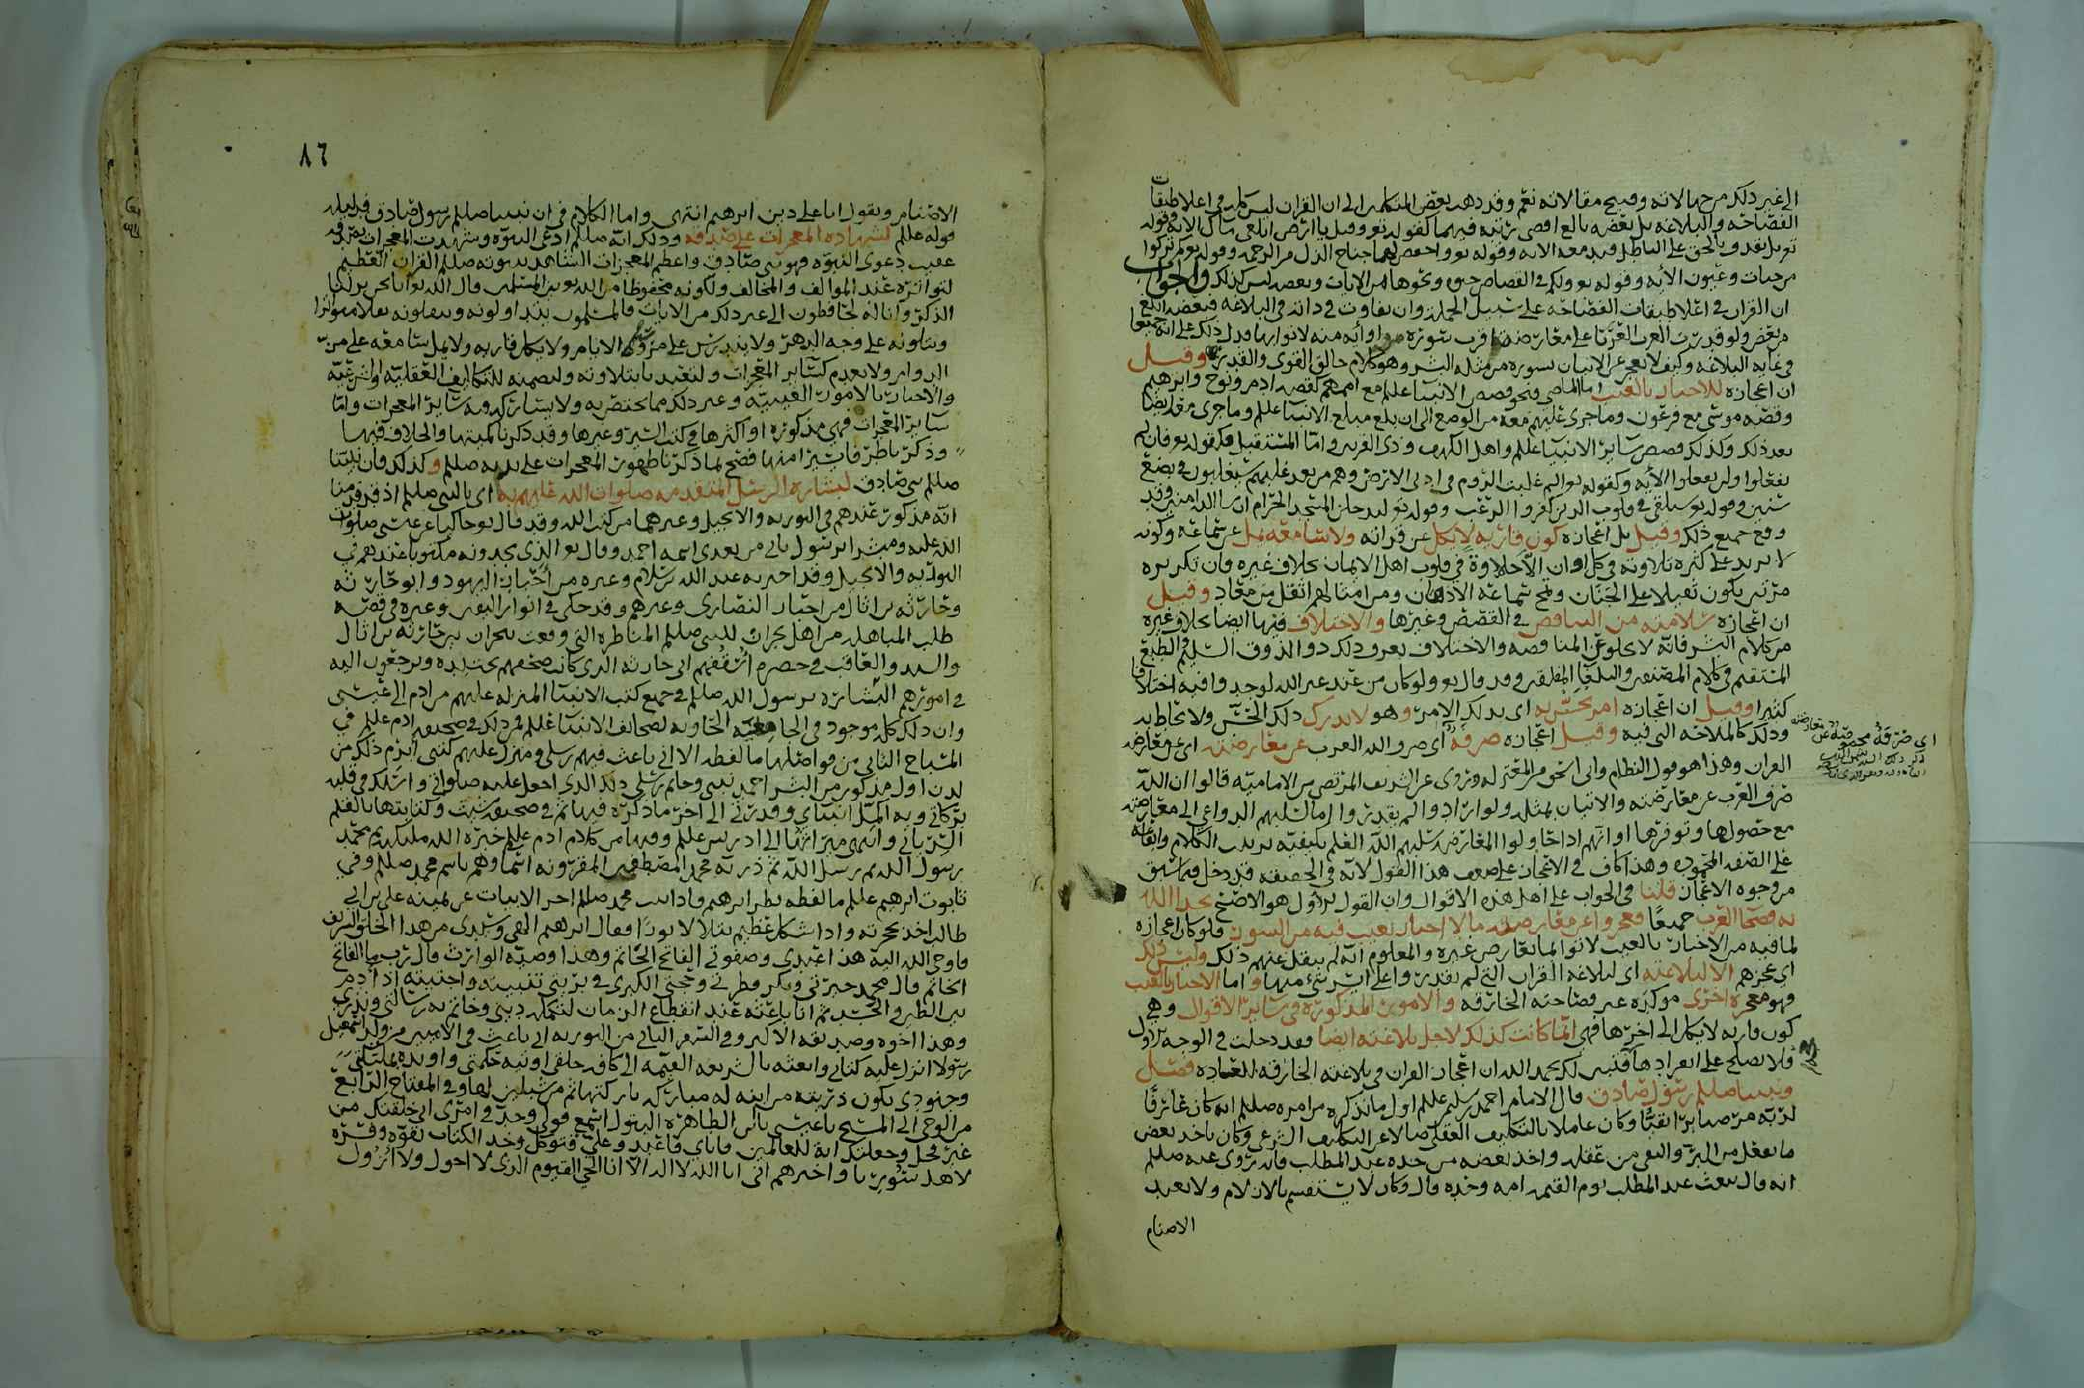 الى غير ذلك من جهالاته وقبيح مقالاته نعم وقد ذهب بعض المتكلمين الى ان القران ليس كله في اعلا طبقات
الفصاحة والبلاغة بل بعضه بالغ اقصى رتبة فيهما كقوله تعالى وقيل يا ارض ابلعي ماك الايه وقوله
تع بل نقذف بالحق على الباطل فيدمغه الايه وقوله تع واخفض لهما جناح الذل من الرحمه وقوله تع كم تركوا
من جنات وعيون الأيه وقوله تع ولكم في القصاص حيوه ونحوها من الايات وبعضه ليس كذلك والجواب
ان القران في اعلا طبقات الفصاحه على سبيل الجمله وان تفاوت في ذاته في البلاغه فبعضه ابلغ
من بعض ولو قدرت العرب العرباء على معارضة اقرب سورة منه او ايه منه لاتوا بها ودل ذلك على انه جميعا
في غاية البلاغه وكيف لا يعجز عن الاتيان بسورة من مثله البشر وهو كلام خالق القوى والقدر وقيل
ان اعجازه للاخبار بالغيب اما الماضي فنحو قصص الانبيا علم مع اممهم كقصة ادم ونوح وابرهيم
وقصة موسى مع فرعون وما جرى عليهم معه من الوضع الى ان بلغ مبلغ الانبيا علم وما جرى من قضايا
بعد ذلك وكذلك قصص سائر الانبيا علم واهل الكهف وذي القرنين واما المستقبل فكقوله تع فان لم
تفعلوا ولن تفعلوا الأيه وكقوله تع الم غلبت الروم في ادنى الارض وهم من بعد غلبهم سيغلبون في بضع
سنين وقوله تع سنلقي في قلوب الذين كفروا الرعب وقوله تع لتدخلن المسجد الحرام ان شا الله امنين وقد
وقع جميع ذلك وقيل بل اعجازه كون قاريه لا يكل عن قرأته ولا سامعه يمل عن سماعه وكونه
لا يزيد على كثرة تلاوته في كل اوان الا حلاوة في قلوب اهل الايمان بخلاف غيره فان تكريره
مرتين يكون ثقيلا على الجنان وتمج سماعه الاذهان ومن امثالهم اثقل من معاد وقيل
ان اعجازه سلامته من التناقض في القصص وغيرها والاختلاف فيها ايضا بخلاف غيره
من كلام البشر فانه لا يخلو عن المناقضه والاختلاف يعرف ذلك ذو الذوق السليم والطبع
المستقيم في كلام المصنفين والبلغا المفلقين وقد قال تع ولو كان من عند غير الله لوجدوا فيه اختلافا
كثيرا وقيل ان اعجازه امر يحس به اي يدرك الامر وهو لا يدرك ذلك الحس ولا يحاط به
وذلك كالملاحة التي فيه وقيل اعجازه صرفة اي صرف الله العرب عن معارضته اي عن معارضة
القران وهذا هو قول النظام وابي اسحق من المعتزله وتروى عن الشريف المرتضى من الاماميه قالوا ان الله
صرف العرب عن معارضته والاتيان بمثله ولو ارادوا لم يقدروا اما لسلبهم الدواعي الى معارضته
مع حصولها وتوفرها او انهم اذا حاولوا المعارضه سلبهم الله العلم بكيفية ترتيب الكلام وايقاعه
على الصفه المحموده وهذا كاف في الاعجاز على ضعف هذا القول لانه في الحقيقه قد دخل فيما سبق
من وجوه الاعجاز قلنا في الجواب على اهل هذه الاقوال وان القول الاول هو الاصح تحدا الله
به فصحا العرب جميعا فعجزوا عن معارضته مالا اخبار بغيب فيه من السور فلو كان اعجازه
لما فيه من الاخبار بالغيب لاتوا بما يعارض غيره والمعلوم انه لم ينقل عنهم ذلك وليس ذلك
اي عجزهم الا لبلاغته اي لبلاغة القران التي لم يقدروا على ايسر شيء منها واما الاخبار بالغيب
فهو معجزة اخرى مؤكدة غير فصاحته الخارقه والامور المذكورة في سائر الاقوال وهي
كون قاريه لا يكل الى اخرها فهي انما كانت كذلك لاجل بلاغته ايضا فقد دخلت في الوجه الاول
فلا يصلح على انفرادها فتبين لك بحمد الله ان اعجاز القران في بلاغته الخارقه للعاده فصل
ونبينا صللم رسول صادق قال الامام احمد بن سليمن علم اول ما نذكره من امره صللم انه كان عارفا
لربه من صباه برا تقيا وكان عاملا بالتكليف العقلي ضالا عن التكليف الشرعي وكان ياخذ بعض
ما يفعل من البر والتقى من عقله واخذ بعضه من جده عبد المطلب فانه يروى عنه صللم
انه قال يبعث عبد المطلب يوم القيمه امه وحده قال وكان لا يستقسم بالازلام ولا يعبد
الاصنام
٨٦
الاصنام ويقول انا على دين ابرهيم انتهى واما الكلام في ان نبينا صللم رسول صادق فدليله
قوله علم لشهادة المعجزات على صدقه وذلك انه صللم ادعى النبوه وشهدت المعجزات بصدقه
عقيب دعوى النبوه فهو نبي صادق واعظم المعجزات الشاهده بنبوته صللم القران العظيم
لتواتره عند الموالف والمخالف ولكونه محفوظا من الله تع بين المسلمين قال الله تع انا نحن نزلنا
الذكر وانا له لحافظون الى غير ذلك من الايات فالمسلمون يتداولونه وينقلونه نقلا متواترا
ويتلونه على وجه الدهر ولا يندرس على مرور الايام ولا يكل قاريه ولا يمل سامعه على مر
الدوام ولا يعدم كسائر المعجزات ولتعبدنا بتلاوته وتضمنه للتكاليف العقليه والشرعيه
والاخبار بالامور الغيبيه وغير ذلك مما يختص به ولا يشاركه فيه سائر المعجزات واما
سائر المعجزات فهي مذكورة او اكثرها في كتب السير وغيرها وقد ذكرنا كميتها والخلاف فيها
وذكرنا طرفا يسيرا منها فصح بما ذكرنا ظهور المعجزات على يديه صللم وكذلك فان نبينا
صللم نبي صادق لبشارة الرسل المتقدمه صلوات الله عليهم به اي بالنبي صللم اذ قد قدمنا
انه مذكور عندهم في التوريه والانجيل وغيرهما من كتب الله وقد قال تع حاكيا عن عيسى صلوات
الله عليه ومبشرا برسول ياتي من بعدي اسمه احمد وقال تع الذي يجدونه مكتوبا عندهم في
التوريه والانجيل وقد اخبر به عبد الله بن سلام وغيره من احبار اليهود وابو حارثه
وحارثه بن اثال من احبار النصارى وغيرهم وقد حكى في انوار اليقين وغيره في قصة
طلب المباهله من اهل نجران للنبي صللم المناظره التي وقعت بنجران بين حارثه بن اثال
والسيد والعاقب وحضره اسقفهم ابي حارثه الذي كانت ضخمهم بحبله ويرجعون اليه
في امورهم البشاره برسول الله صللم في جميع كتب الانبيا المنزله عليهم من ادم الى عيسى
وان ذلك كله موجود في الجامعه الحاويه لصحائف الانبيا علم فمن ذلك في صحيفة ادم علم في
المصباح الثاني من فواصلها ما لفظه الا اني باعث فيهم رسلي ومنزل عليهم كتبي ابرم ذلك من
لدن اول مذكور من البشر احمد نبيي وخاتم رسلي ذلك الذي اجعل عليه صلواتي واسلك في قلبه
بركاتي وبه اكمل انبياي ونذري الى اخر ما ذكره فيها ثم في صحيفة شيث وكتابتها بالقلم
السرياني وانتهى ميراثها الى ادريس علم وفيها من كلام ادم علم خيرة الله من خليقته محمد
رسول الله ثم رسل الله ثم ذريه محمد المصطفين المقرونه اسماوهم باسم محمد صللم وفي
تابوت ابرهيم علم ما لفظه نظر ابرهيم واذا بيت محمد صللم اخر الابيات عن يمينه علي بن ابي
طالب اخذ بحجزته واذا شكل عظيم يتلالا نورا فقال ابرهيم الهي وسيدي من هذا الخلق الشريف
فاوحى الله اليه هذا عبدي وصفوتي الفاتح الخاتم وهذا وصيه الوارث قال رب ما الفاتح
الخاتم قال محمد خيرتي وبكر فطرتي وحجتي الكبرى في بريتي تنبيته واجتبيته اذ ادم
بين الطين والجسد ثم انا باعثه عند انقطاع الزمان لتكملة ديني وخاتم به رسالتي ونذري
وهذا اخوه وصديقه الاكبر وفي السفر الثاني من التوريه اني باعث في الاميين من ولد اسمعيل
رسولا انزل عليه كتابي وابعثه بالشريعه القيمه الى كافة خلقي اوتيه حكمتي واويده بملئكتي
وجنودي يكون ذريته من ابنة له مباركه باركتها ثم من شبلين لهما وفي المفتاح الرابع
من الوحي الى المسيح يا عيسى يا ابن الطاهرة البتول اسمع قولي وجد في امري اني خلقتك من
غير فحل وجعلتك اية للعالمين فاياي فاعبد وعلي فتوكل وخذ الكتاب بقوه وفسره
لاهل سوريا واخبرهم اني انا الله لا اله الا انا الحي القيوم الذي لا احول ولا ازول